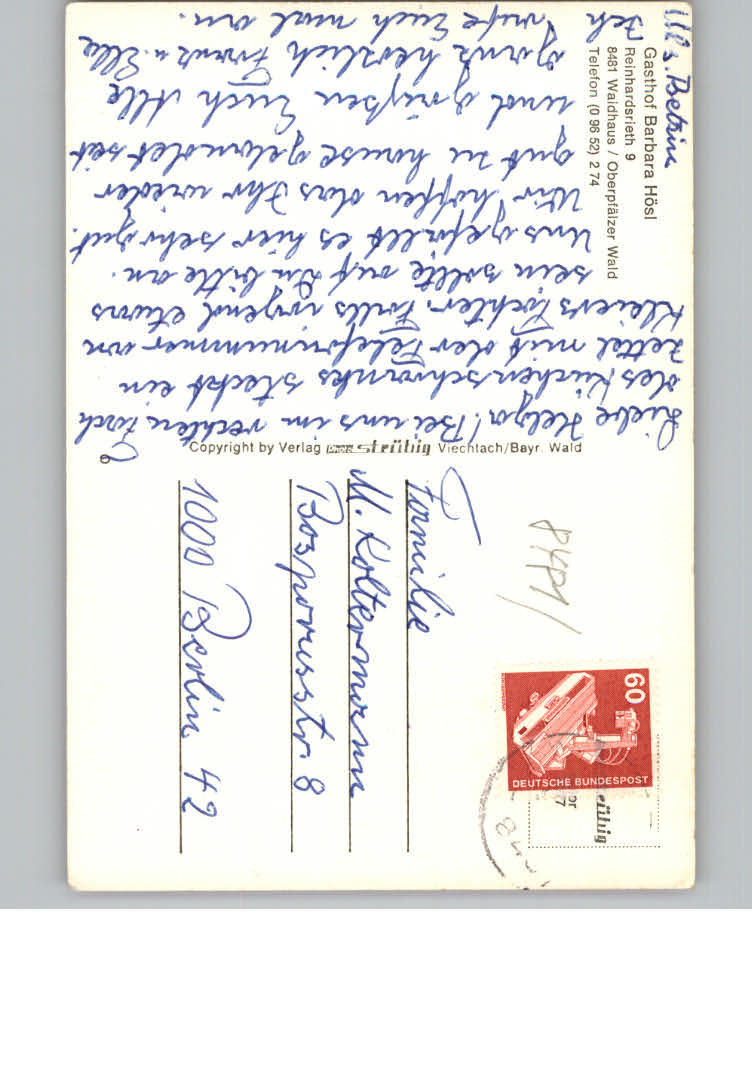 Gasthof Barbara Hösl
Reinhardsrieth 9
8481 Waidhaus / Oberpfälzer Wald
Telefon (0 96 52) 2 74
Liebe Helga! Bei uns im rechten Fach
des Küchenschranks steckt ein
Zettel mit der Telefonnummer von
Kleiers Tochter. Falls irgend etwas
sein sollte ruf Du bitte an.
Uns gefällt es hier sehr gut.
Wir hoffen das Ihr wieder
gut zu hause gelandet seit
und grüßen Euch Alle
ganz herzlich Franz u. Ella
Ich rufe Euch mal an.
Copyright by Verlag Photo Strübig Viechtach/Bayr. Wald
8481
60
DEUTSCHE BUNDESPOST
Strübig
Familie
M. Koltermann
Bosporusstr 8
1000 Berlin 42